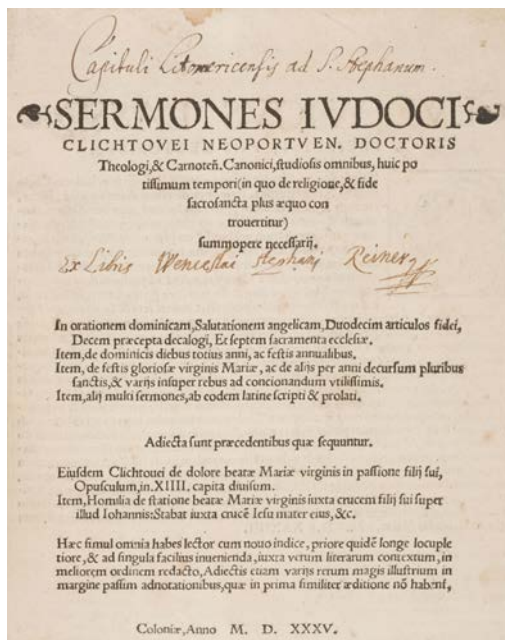 Capituli Litomericensis ad S. Stephanum.
SERMONES IVDOCI
CLICHTOVEI NEOPORTVEN. DOCTORIS
Theologi, & Carnoteñ. Canonici, studiosis omnibus, huic po
tissimum tempori (in quo de religione, & fide
sacrosancta plus æquo con
trouertitur)
summopere necessarij.
Ex Libris Wenceslai Stephani Reiner
In orationem dominicam, Salutationem angelicam, Duodecim articulos fidei,
Decem præcepta decalogi, Et septem sacramenta ecclesiæ.
Item, de dominicis diebus totius anni, ac festis annualibus.
Item, de festis gloriosæ virginis Mariæ, ac de alijs per anni decursum pluribus
sanctis, & varijs insuper rebus ad concionandum vtilissimis.
Item, alij multi sermones, ab eodem latine scripti & prolati.
Adiecta sunt præcedentibus quæ sequuntur.
Eiusdem Clichtouei de dolore beatæ Mariæ virginis in passione filij sui,
Opusculum, in. XIIII. capita diuisum.
Item, Homilia de statione beatæ Mariæ virginis iuxta crucem filij sui super
illud Iohannis: Stabat iuxta crucē Iesu mater eius, &c.
Hæc simul omnia habes lector cum nouo indice, priore quidē longe locuple
tiore, & ad singula facilius inuenienda, iuxta verum literarum contextum, in
meliorem ordinem redacto, Adiectis etiam varijs rerum magis illustrium in
margine passim adnotationibus, quæ in prima similiter æditione nō habent,
Coloniæ, Anno M. D. XXXV.